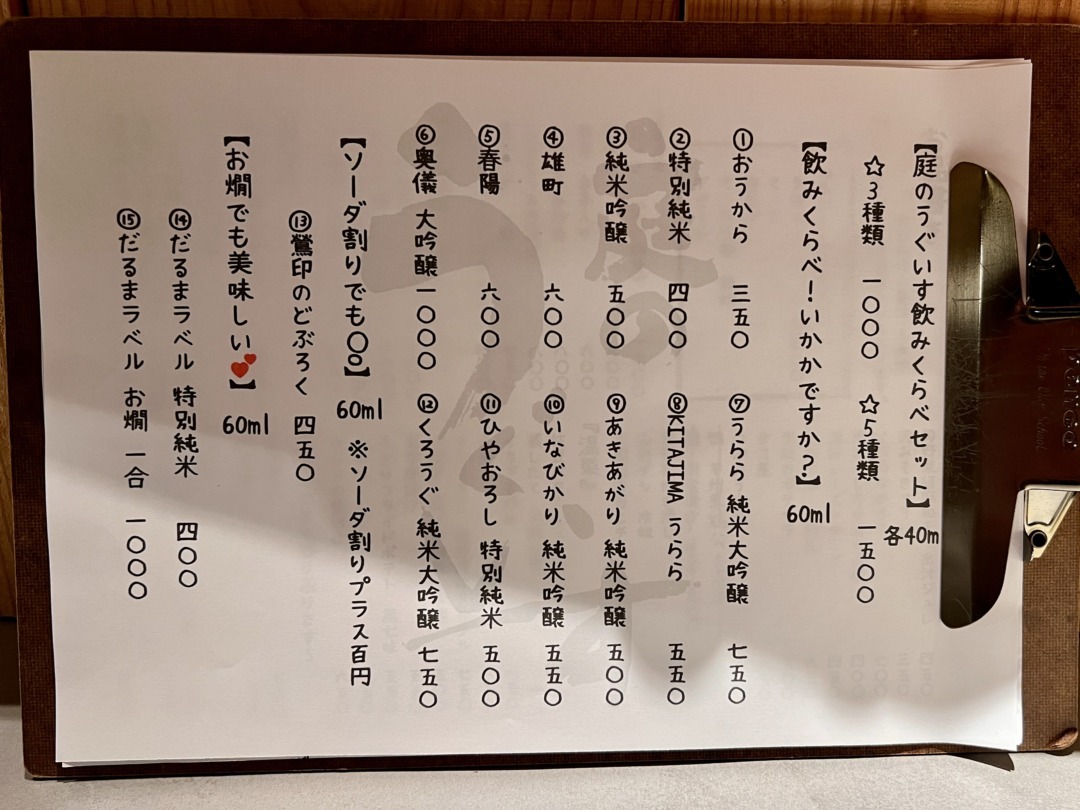 【庭のうぐいす飲みくらべセット】各40m
☆3種類 一〇〇〇 ☆5種類 一五〇〇
【飲みくらべ!いかかですか?】60ml
①おうから 三五〇 ⑦うらら 純米大吟醸 七五〇
②特別純米 四〇〇 ⑧KITAJIMA うらら 五五〇
③純米吟醸 五〇〇 ⑨あきあがり 純米吟醸 五〇〇
④雄町 六〇〇 ⑩いなびかり 純米吟醸 五五〇
⑤春陽 六〇〇 ⑪ひやおろし 特別純米 五〇〇
⑥奥儀 大吟醸 一〇〇〇 ⑫くろうぐ 純米大吟醸 七五〇
【ソーダ割りでも〇◎】60ml ※ソーダ割りプラス百円
⑬鶯印のどぶろく 四五〇
【お燗でも美味しい💕】60ml
⑭だるまラベル 特別純米 四〇〇
⑮だるまラベル お燗 一合 一〇〇〇